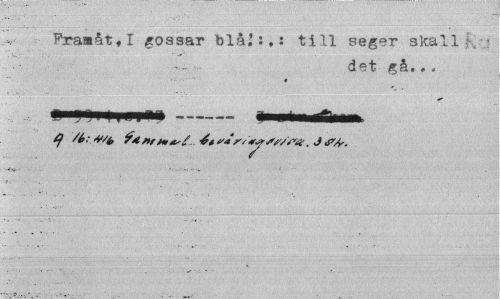 Framåt, I gossar blå!:,: till seger skall Ra
det gå...
------
A 16:416 Gammal beväringsvisa. 3 str.